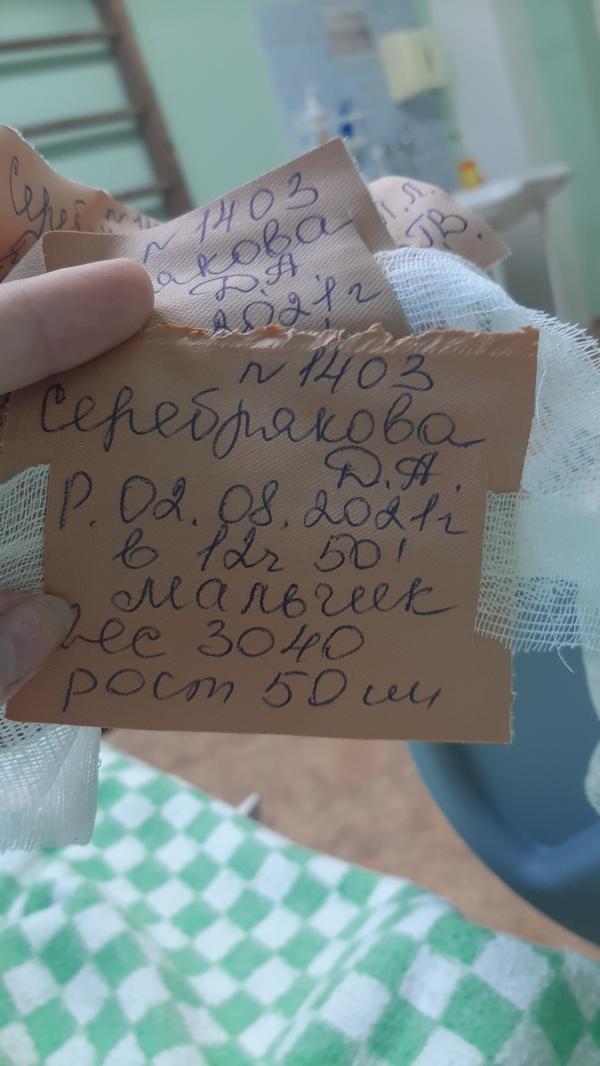 Сереб
N 1403
акова
Д.А.
2021г
Т.В.
N 1403
Серебрякова
Д.А.
Р. 02.08.2021г
в 12ч 50'
мальчик
вес 3040
рост 50 см